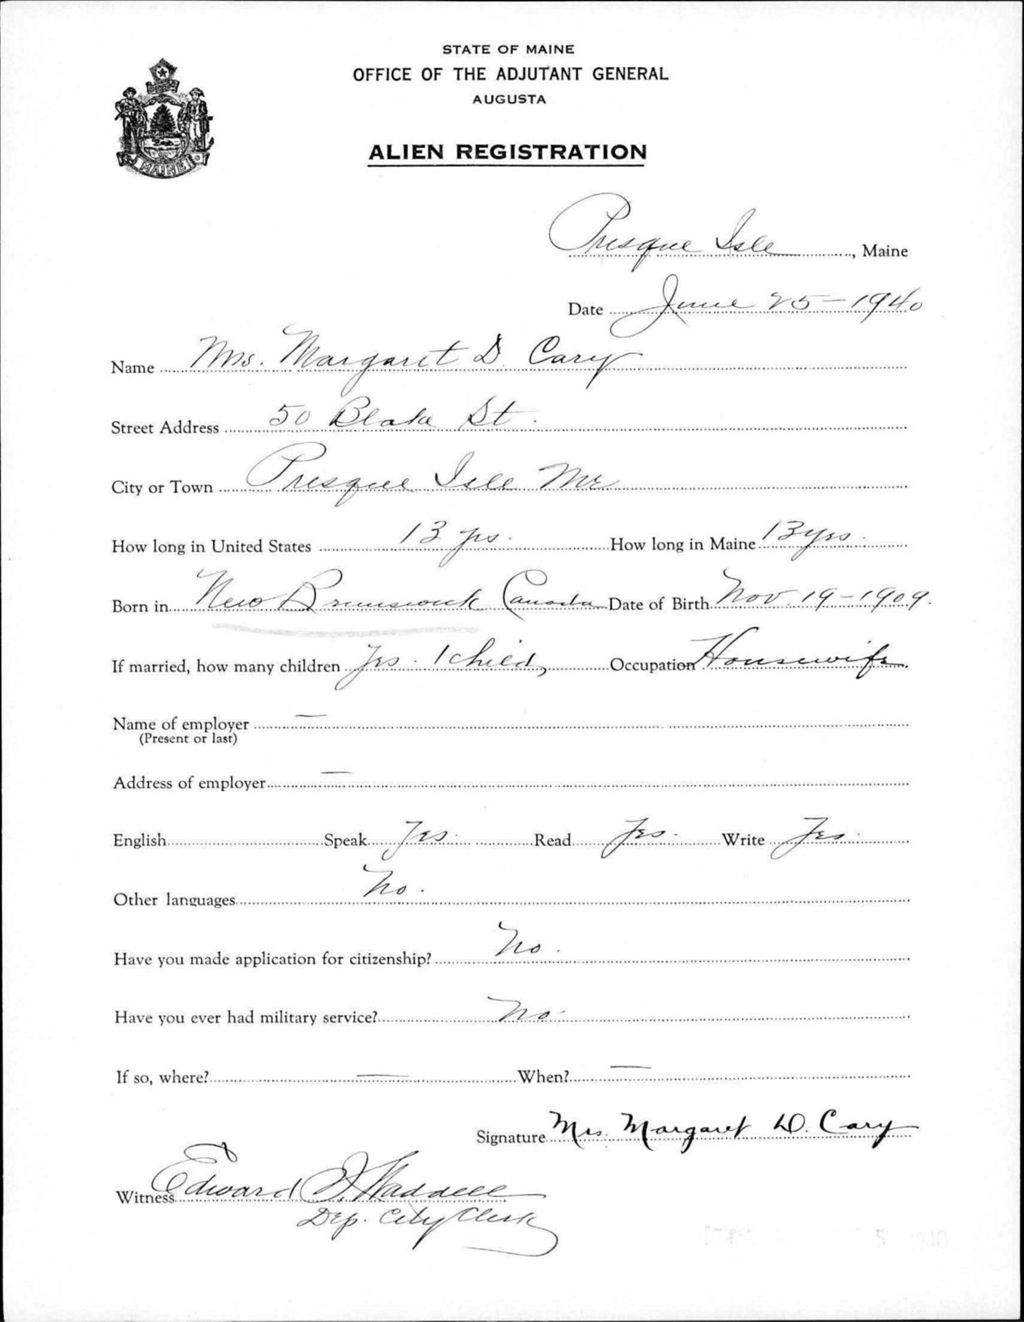 STATE OF MAINE
OFFICE OF THE ADJUTANT GENERAL
AUGUSTA
ALIEN REGISTRATION
MAINE
Presque Isle, Maine
Date June 25-1940
Name Mrs. Margaret D. Cary
Street Address 50 Blake St.
City or Town Presque Isle Me
How long in United States 13 yrs. How long in Maine 13 yrs.
Born in New Brunswick Canada Date of Birth Nov. 19-1909.
If married, how many children Yes. 1 child, Occupation Housewife.
Name of employer —
(Present or last)
Address of employer —
English Speak Yes. Read Yes. Write Yes.
Other languages No.
Have you made application for citizenship? No.
Have you ever had military service? No.
If so, where? — When? —
Signature Mrs. Margaret D. Cary
Witness Edward Waddell
Dep. City Clerk